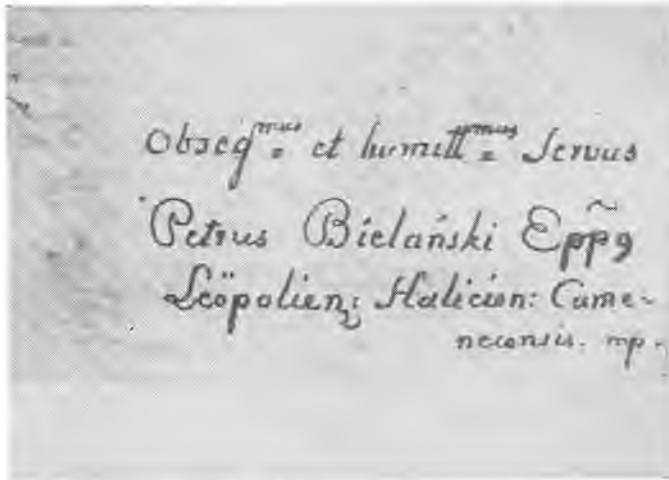 Obseq^mus et humill^mus Servus
Petrus Bielański Epp̃9
Leöpolien: Halicien: Came-
necensis. mp.